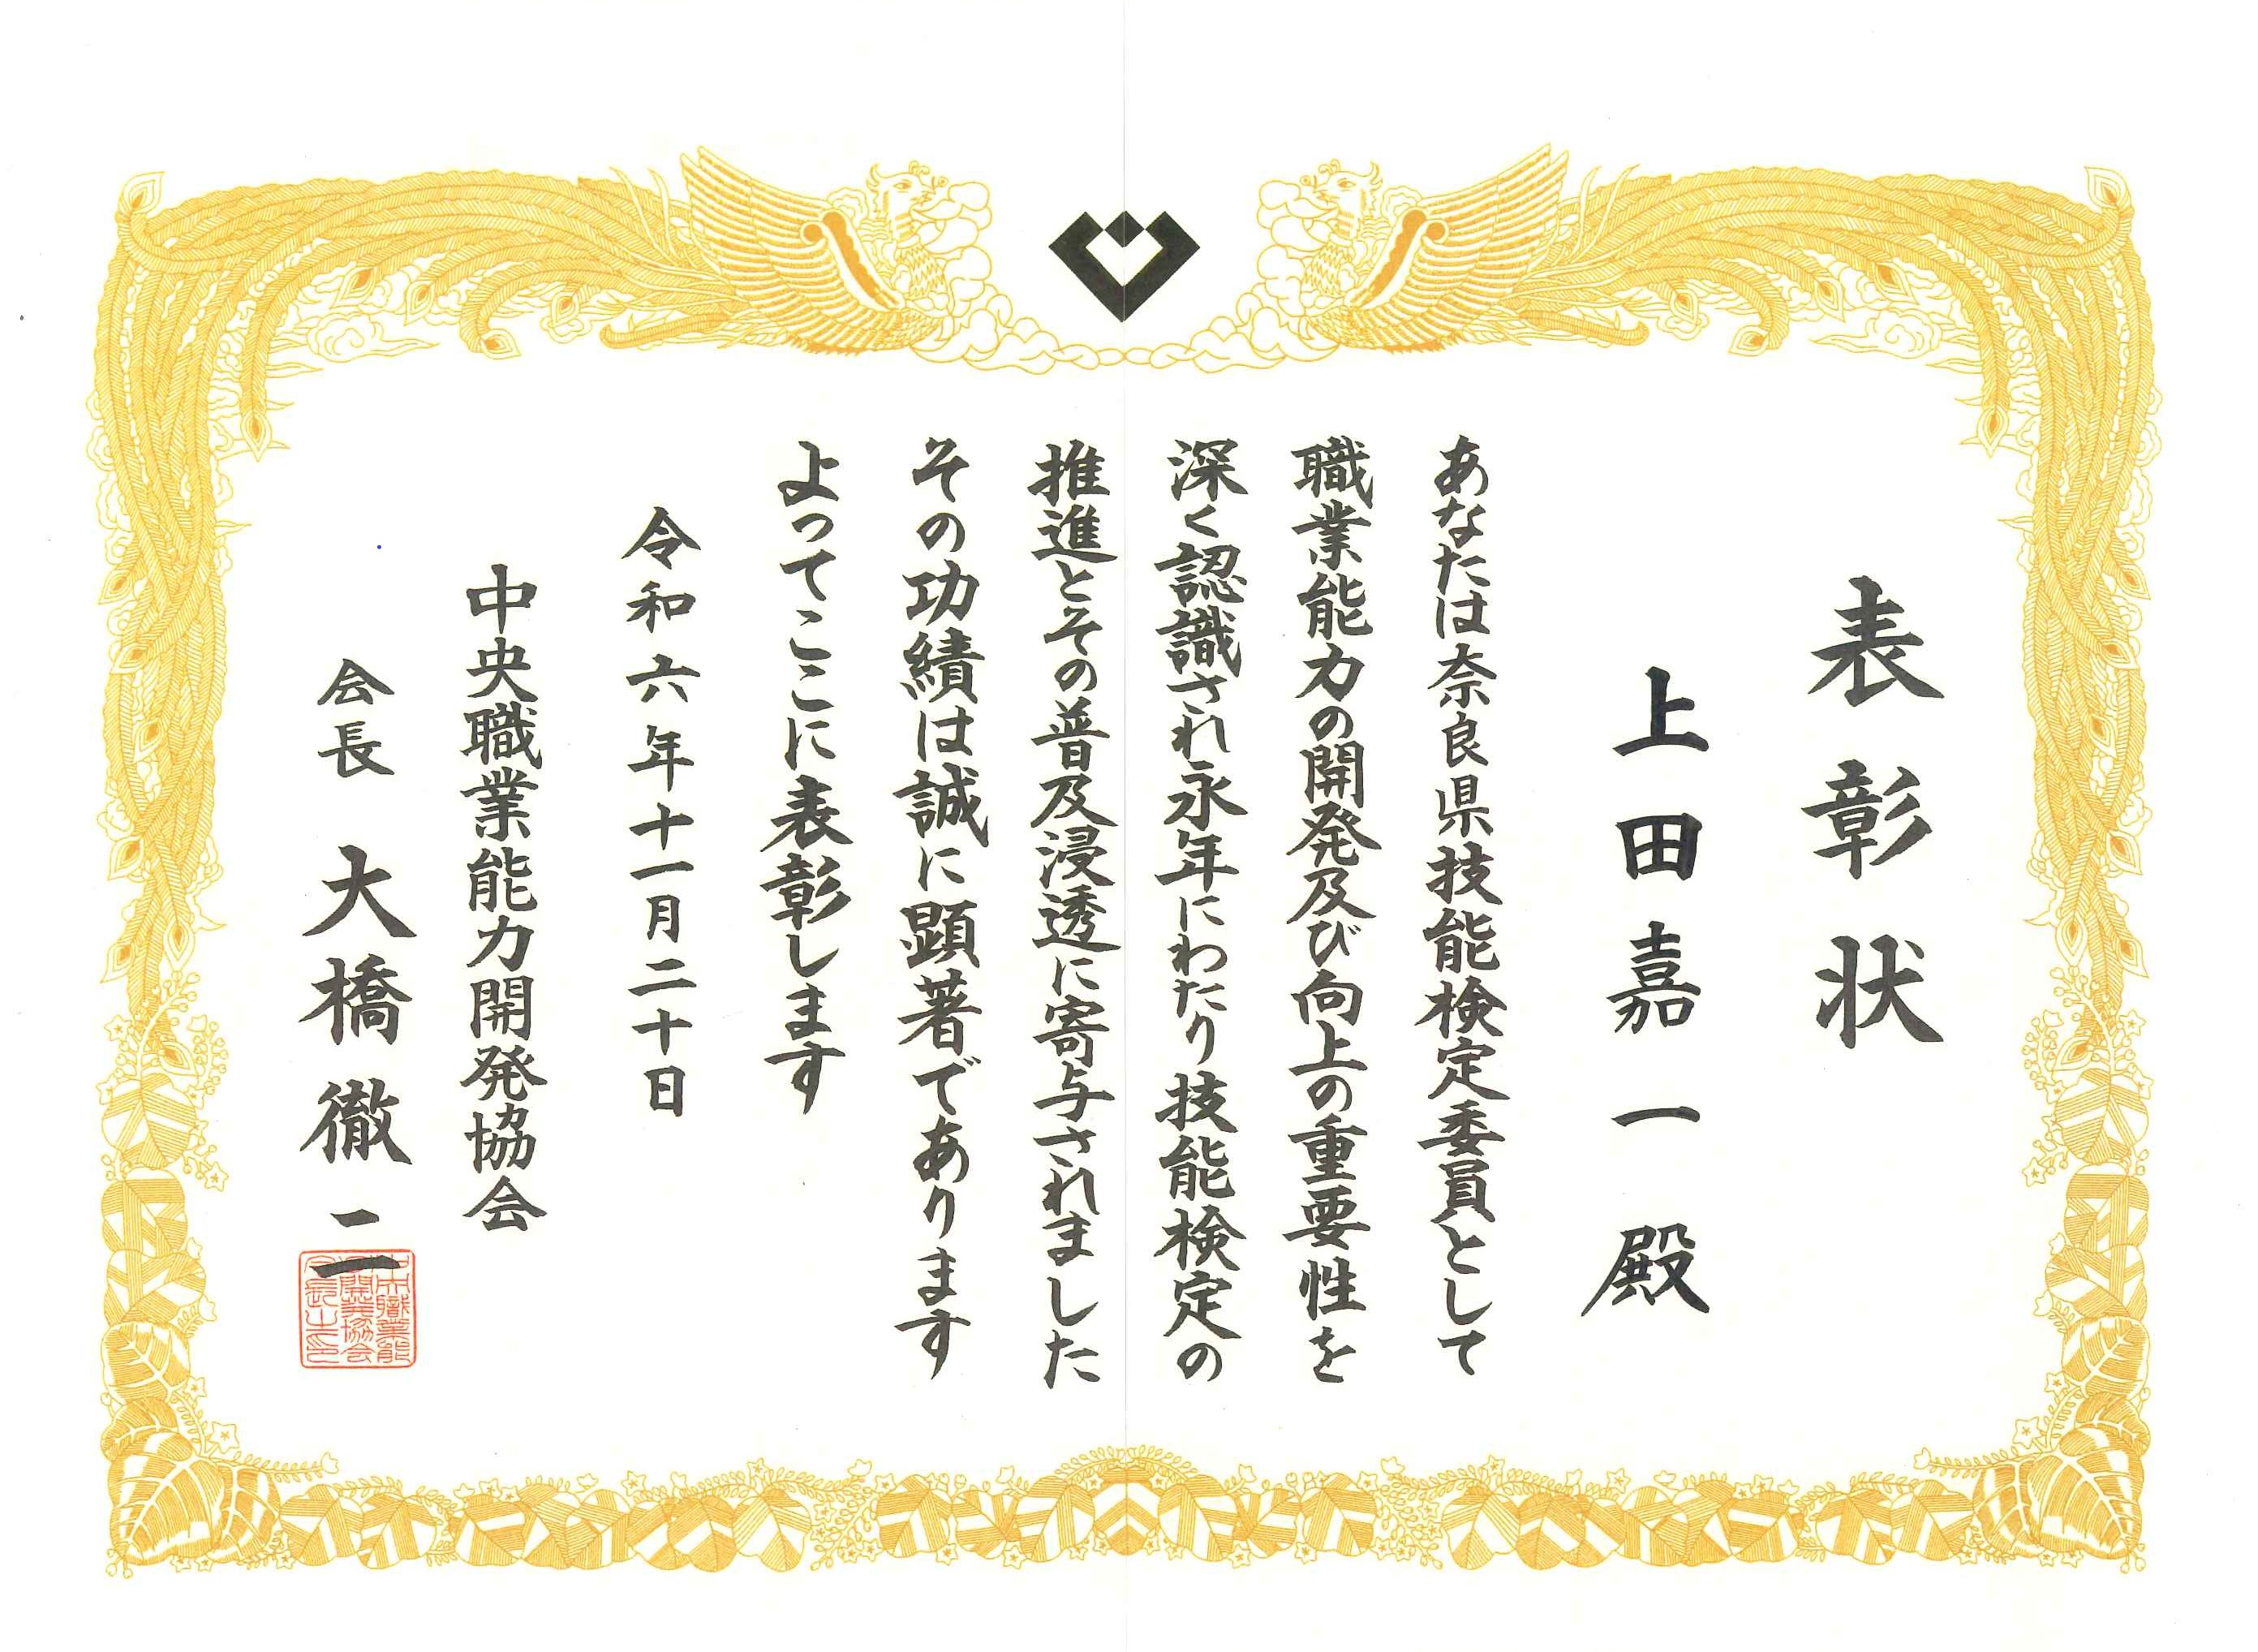 表彰状
上田嘉一殿
あなたは奈良県技能検定委員として
職業能力の開発及び向上の重要性を
深く認識され永年にわたり技能検定の
推進とその普及浸透に寄与されました
その功績は誠に顕著であります
よってここに表彰します
令和六年十一月二十日
中央職業能力開発協会
会長 大橋徹二